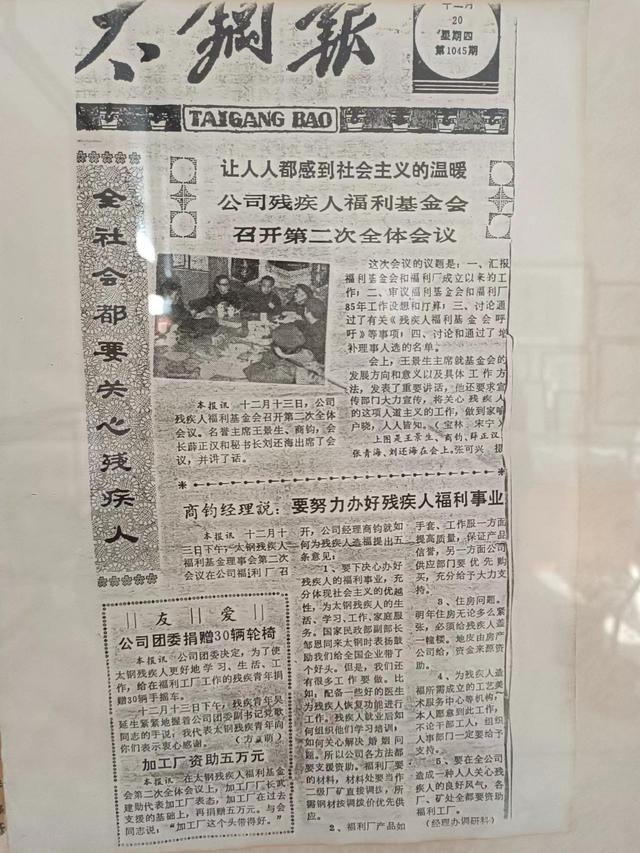 太钢报
十二月
20
星期四
第1045期
TAIGANG BAO
全社会都要关心残疾人
让人人都感到社会主义的温暖
公司残疾人福利基金会
召开第二次全体会议
本报讯 十二月十三日，公司
残疾人福利基金会召开第二次全体
会议。名誉主席王景生、商钧，会
长薛正汉和秘书长刘还海出席了会
议，并讲了话。
这次会议的议题是：一、汇报
福利基金会和福利厂成立以来的工
作；二、审议福利基金会和福利厂
85年工作设想和打算；三、讨论通
过了有关《残疾人福利基金会呼
吁》等事项；四、讨论和通过了增
补理事人选的名单。
会上，王景生主席就基金会的
发展方向和意义以及具体工作方
法，发表了重要讲话，他还要求宣
传部门大力宣传，将关心残疾人
的这项人道主义的工作，做到家喻
户晓，人人皆知。（宝林 宋宁）
上图是王景生、商钧、薛正汉、
张青海、刘还海在会上。张可兴 摄
商钧经理说：要努力办好残疾人福利事业
本报讯 十二月十
三日下午，太钢残疾人
福利基金会理事会第二次
会议在公司福利厂召
开，公司经理商钧就如
何为残疾人造福提出五
条意见：
1、要下决心办好
残疾人的福利事业，充
分体现社会主义的优越
性，为太钢残疾人的生
活、学习、工作、家庭服
务。国家民政部副部长
邹恩同来太钢时表扬鼓
励我们给全国企业带了
个好头。但是，我们还
有很多工作要做。比
如，配备一些好的医生
为残疾人恢复功能进行
工作。残疾人就业后如
何组织他们学习培训，
如何关心解决婚姻问
题。所以公司各方法都
要支援资助。福利厂要
的材料，材料处要当作
二级厂矿直接调拨，所
需钢材按调拨价优先供
应。
2、福利厂产品如
手套、工作服一方面
提高质量，保证产品
信誉，另一方面公司
供应部门要优先购
买，充分给予大力支
持。
3、住房问题。
明年住房无论多么紧
张，必须给残疾人盖
一幢楼。地皮由房产
公司给，资金来源资
助。
4、为残疾人造
福所需成立的工艺美
术服务中心等机构，
本人愿意到此工作，
不论干部工人，组织
人事部门一定要给予
支持。
5、要在全公司
造成一种人人关心残
疾人的良好风气，各
厂、矿处全都要资助
福利工厂。
（经理办调研科）
友 爱
公司团委捐赠30辆轮椅
本报讯 公司团委决定，为了使
太钢残疾人更好地学习、生活、工
作，给在福利工厂工作的残疾青年捐
赠30辆手摇车。
十二月十三日下午，残疾青年吴
延生紧紧地握着公司团委副书记党歌
同志的手说，我代表太钢残疾青年向
你们表示衷心感谢。
加工厂资助五万元
本报讯 在太钢残疾人福利基金
会第二次全体会议上，加工厂厂长武
建助代表加工厂表态，加工厂在过去
支援的基础上，再捐赠五万元。与会
同志说：“加工厂这个头带得好。”